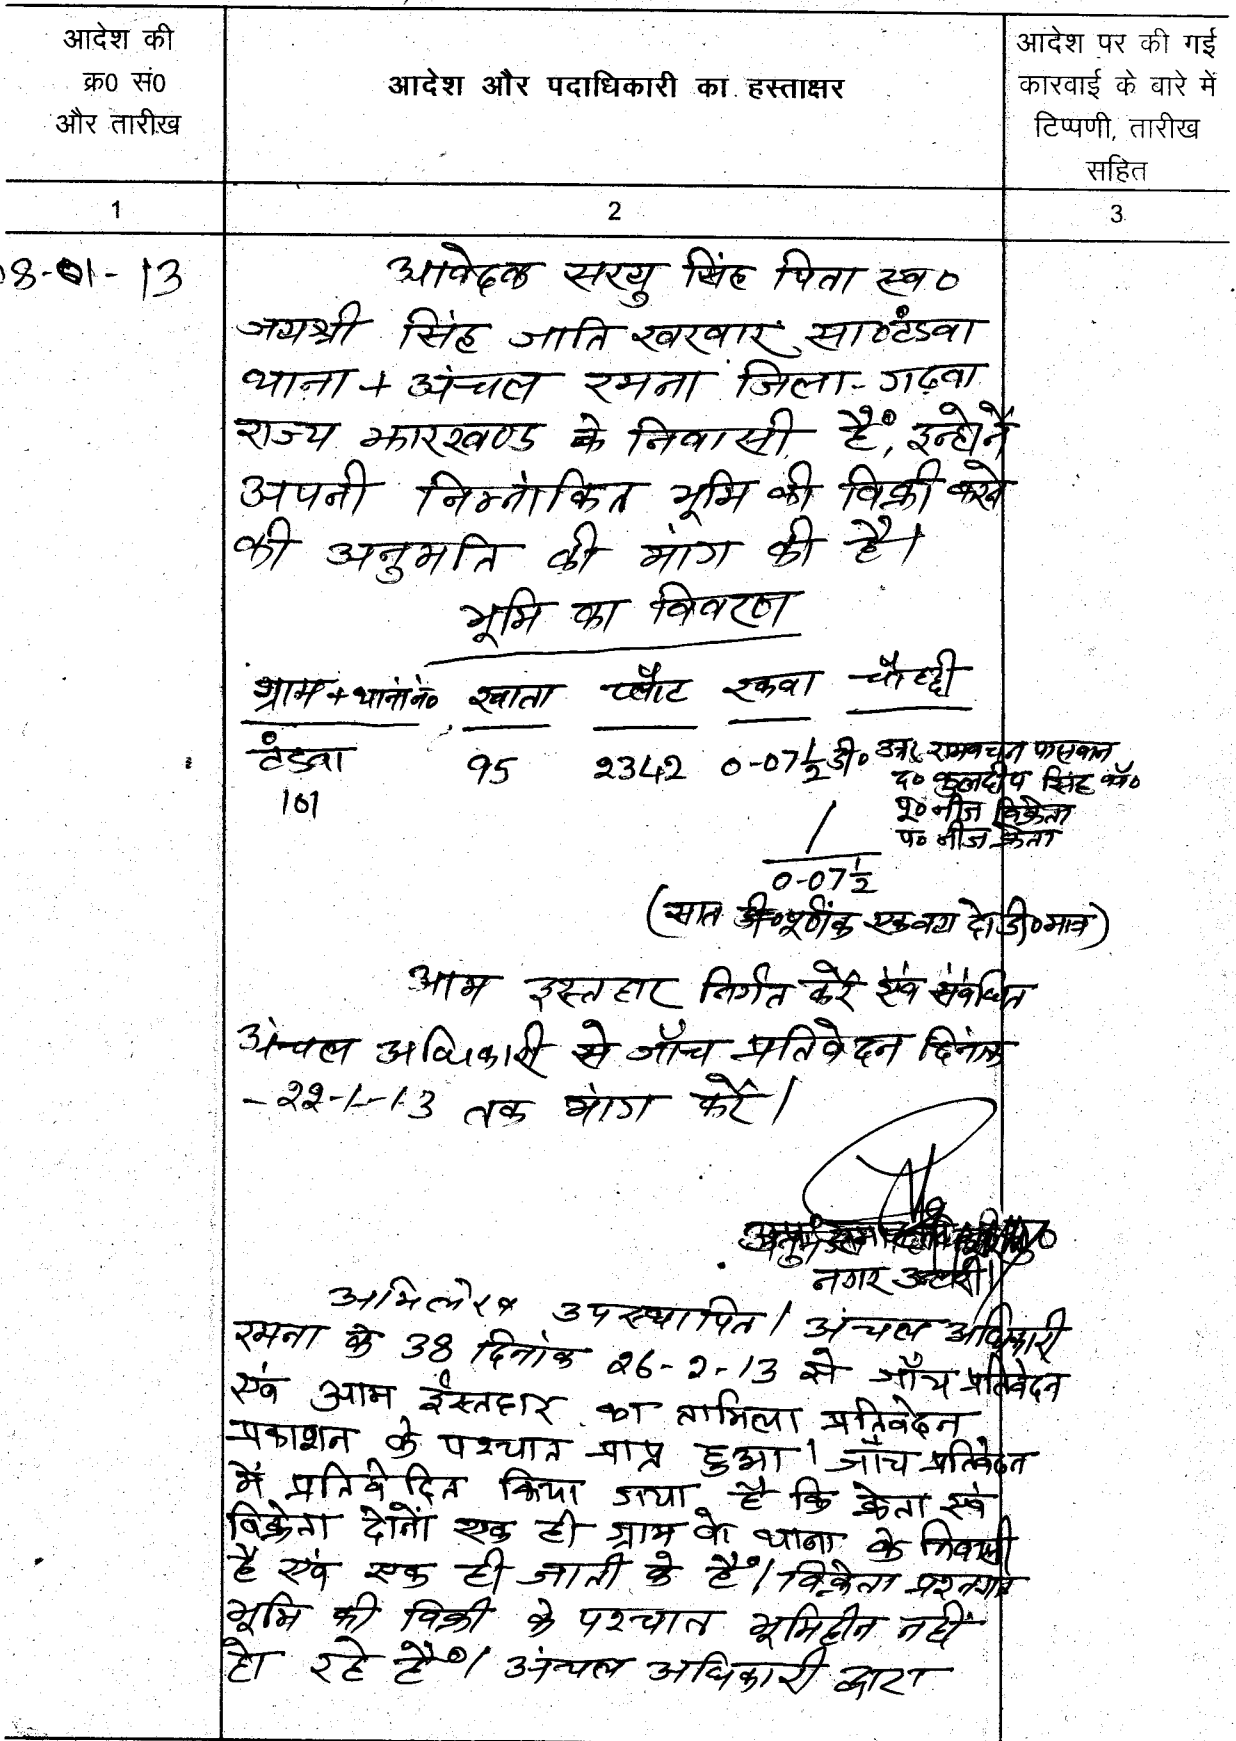 आदेश की
क्र0 सं0
और तारीख
आदेश और पदाधिकारी का हस्ताक्षर
आदेश पर की गई
कारवाई के बारे में
टिप्पणी, तारीख
सहित
1
2
3
08-01-13
आवेदक सरयु सिंह पिता स्व0
जयश्री सिंह जाति खरवार सा0टंडवा
थाना + अंचल रमना जिला-गढ़वा
राज्य झारखण्ड के निवासी हैं, इन्होंने
अपनी निम्नांकित भूमि की विक्री करने
की अनुमति की मांग की है।
भूमि का विवरण
ग्राम + थाना नं0 खाता प्लौट रकवा चौहद्दी
टंडवा 95 2342 0-07½ डी0 उ0 रामवचन पासवान
101
द0 कुलदीप सिंह
पू0 नीज विक्रेता
प0 नीज क्रेता
0-07½
(सात डी0 पूर्णांक एक वटा दो डी0 मात्र)
आम इस्तहार निर्गत करें एवं संबंधित
अंचल अधिकारी से जाँच प्रतिवेदन दिनांक
-22-1-13 तक मांग करें।
नगर उन्टारी।
अभिलेख उपस्थापित। अंचल अधिकारी
रमना के 38 दिनांक 26-2-13 से जाँच प्रतिवेदन
एवं आम ईस्तहार का तामिला प्रतिवेदन
प्रकाशन के पश्चात प्राप्त हुआ। जाँच प्रतिवेदन
में प्रतिवेदित किया गया है कि क्रेता एवं
विक्रेता दोनों एक ही ग्राम वो थाना के निवासी
है एवं एक ही जाती के हैं। विक्रेता प्रश्नगत
भूमि की विक्री के पश्चात भूमिहीन नहीं
हो रहे हैं। अंचल अधिकारी द्वारा